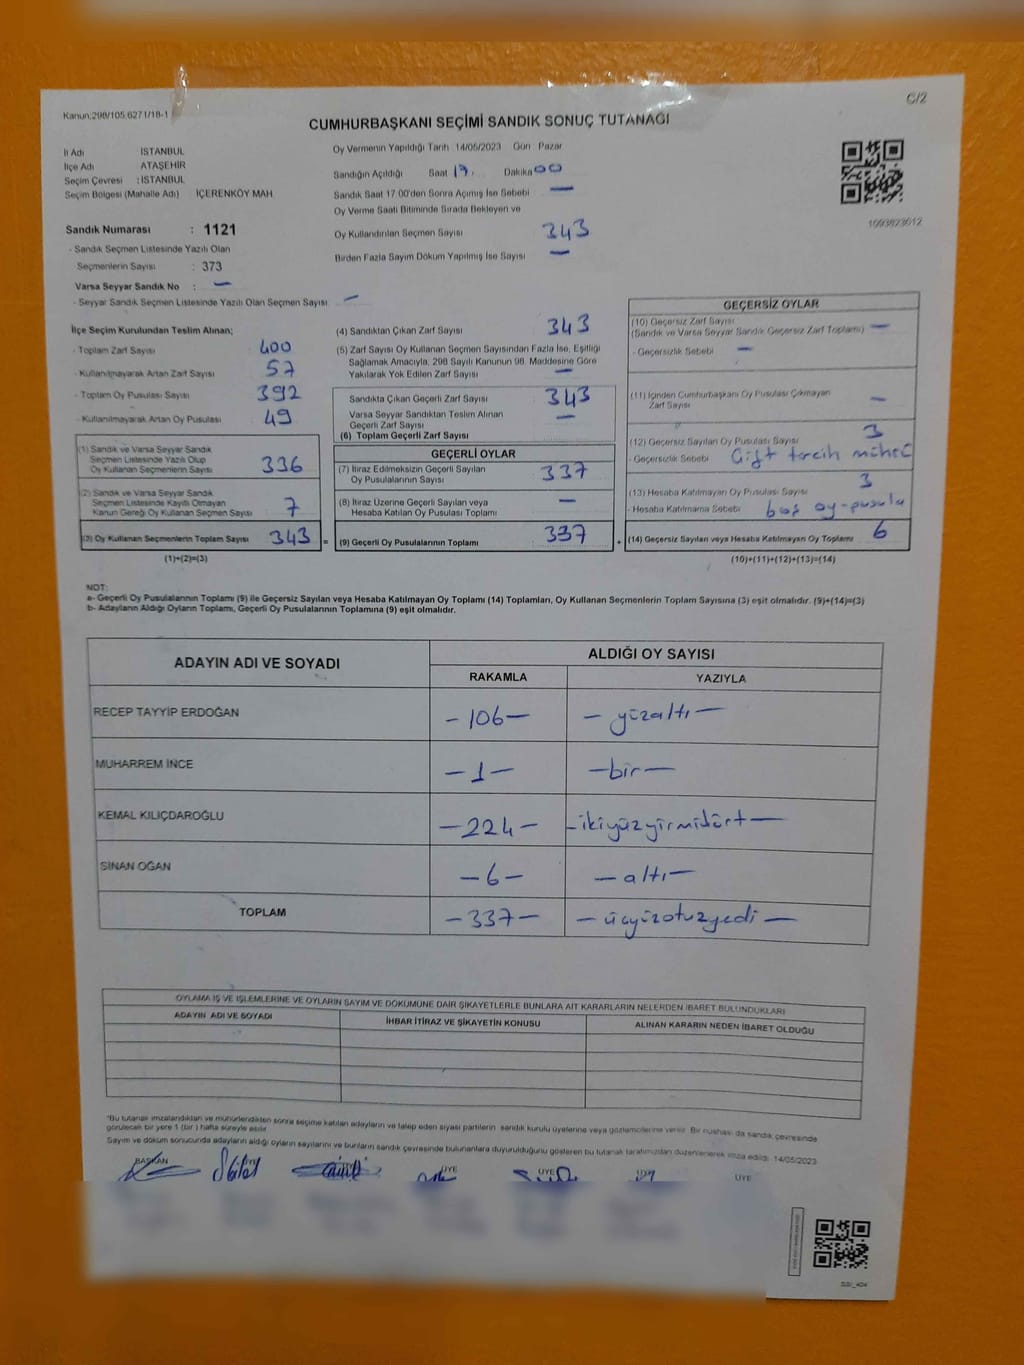 C/2
Kanun:298/105,6271/18-1
CUMHURBAŞKANI SEÇİMİ SANDIK SONUÇ TUTANAĞI
İl Adı İSTANBUL
İlçe Adı ATAŞEHİR
Seçim Çevresi : İSTANBUL
Seçim Bölgesi (Mahalle Adı) İÇERENKÖY MAH
Sandık Numarası : 1121
- Sandık Seçmen Listesinde Yazılı Olan
Seçmenlerin Sayısı : 373
Varsa Seyyar Sandık No : —
- Seyyar Sandık Seçmen Listesinde Yazılı Olan Seçmen Sayısı : —
Oy Vermenin Yapıldığı Tarih 14/05/2023 Gün Pazar
Sandığın Açıldığı Saat 17 Dakika 00
Sandık Saat 17.00'den Sonra Açılmış İse Sebebi —
Oy Verme Saati Bitiminde Sırada Bekleyen ve
Oy Kullandırılan Seçmen Sayısı 343
Birden Fazla Sayım Döküm Yapılmış İse Sayısı —
1093823012
İlçe Seçim Kurulundan Teslim Alınan;
- Toplam Zarf Sayısı 400
- Kullanılmayarak Artan Zarf Sayısı 57
- Toplam Oy Pusulası Sayısı 392
- Kullanılmayarak Artan Oy Pusulası 49
(1) Sandık ve Varsa Seyyar Sandık
Seçmen Listesinde Yazılı Olup
Oy Kullanan Seçmenlerin Sayısı 336
(2) Sandık ve Varsa Seyyar Sandık
Seçmen Listesinde Kayıtlı Olmayan
Kanun Gereği Oy Kullanan Seçmen Sayısı 7
(3) Oy Kullanan Seçmenlerin Toplam Sayısı 343 =
(1)+(2)=(3)
(4) Sandıktan Çıkan Zarf Sayısı 343
(5) Zarf Sayısı Oy Kullanan Seçmen Sayısından Fazla İse, Eşitliği
Sağlamak Amacıyla; 298 Sayılı Kanunun 98. Maddesine Göre
Yakılarak Yok Edilen Zarf Sayısı —
Sandıkta Çıkan Geçerli Zarf Sayısı 343
Varsa Seyyar Sandıktan Teslim Alınan
Geçerli Zarf Sayısı —
(6) Toplam Geçerli Zarf Sayısı
GEÇERLİ OYLAR
(7) İtiraz Edilmeksizin Geçerli Sayılan
Oy Pusulalarının Sayısı 337
(8) İtiraz Üzerine Geçerli Sayılan veya
Hesaba Katılan Oy Pusulası Toplamı —
(9) Geçerli Oy Pusulalarının Toplamı 337 +
GEÇERSİZ OYLAR
(10) Geçersiz Zarf Sayısı
(Sandık ve Varsa Seyyar Sandık Geçersiz Zarf Toplamı) —
- Geçersizlik Sebebi —
(11) İçinden Cumhurbaşkanı Oy Pusulası Çıkmayan
Zarf Sayısı —
(12) Geçersiz Sayılan Oy Pusulası Sayısı 3
- Geçersizlik Sebebi Çift tercih mührü
(13) Hesaba Katılmayan Oy Pusulası Sayısı 3
- Hesaba Katılmama Sebebi boş oy-pusula
(14) Geçersiz Sayılan veya Hesaba Katılmayan Oy Toplamı 6
(10)+(11)+(12)+(13)=(14)
NOT:
a- Geçerli Oy Pusulalarının Toplamı (9) ile Geçersiz Sayılan veya Hesaba Katılmayan Oy Toplamı (14) Toplamları, Oy Kullanan Seçmenlerin Toplam Sayısına (3) eşit olmalıdır. (9)+(14)=(3)
b- Adayların Aldığı Oyların Toplamı, Geçerli Oy Pusulalarının Toplamına (9) eşit olmalıdır.
ADAYIN ADI VE SOYADI ALDIĞI OY SAYISI
RAKAMLA YAZIYLA
RECEP TAYYİP ERDOĞAN -106- - yüzaltı -
MUHARREM İNCE -1- -bir-
KEMAL KILIÇDAROĞLU -224- -ikiyüzyirmidört-
SİNAN OĞAN -6- -altı-
TOPLAM -337- -üçyüzotuzyedi-
OYLAMA İŞ VE İŞLEMLERİNE VE OYLARIN SAYIM VE DÖKÜMÜNE DAİR ŞİKAYETLERLE BUNLARA AİT KARARLARIN NELERDEN İBARET BULUNDUKLARI
ADAYIN ADI VE SOYADI İHBAR İTİRAZ VE ŞİKAYETİN KONUSU ALINAN KARARIN NEDEN İBARET OLDUĞU
*Bu tutanak imzalandıktan ve mühürlendikten sonra seçime katılan adayların ve talep eden siyasi partilerin sandık kurulu üyelerine veya gözlemcilerine verilir. Bir nüshası da sandık çevresinde
görülecek bir yere 1 (bir) hafta süreyle asılır.
Sayım ve döküm sonucunda adayların aldığı oyların sayılarını ve bunların sandık çevresinde bulunanlara duyurulduğunu gösteren bu tutanak tarafımızdan düzenlenerek imza edildi. 14/05/2023
BAŞKAN ÜYE ÜYE ÜYE